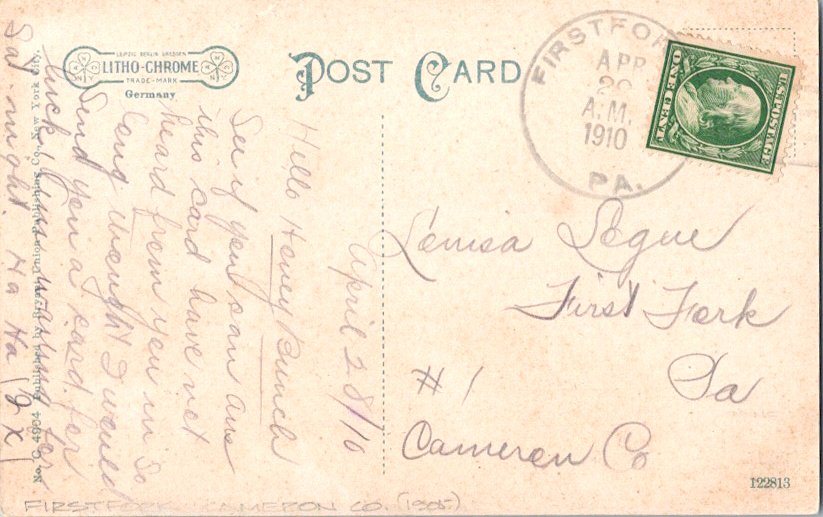 LEIPZIG BERLIN DRESDEN
LITHO-CHROME
TRADE-MARK
Germany
POST CARD
FIRSTFOR
APR
A.M.
1910
PA.
U.S. POSTAGE
ONE CENT
April 28/10
Hello Honey Bunch
See if you can ans
this card have not
heard from you in so
long thought I would
Send you a card for
luck
Sat. night. Ha Ha (B X)
Louisa Logue
First Fork
Pa
# 1
Cameron Co
No. C 4904 Published by Bryant Union Publishing Co., New York City.
122813
FIRSTFORK, CAMERON CO. (1905)